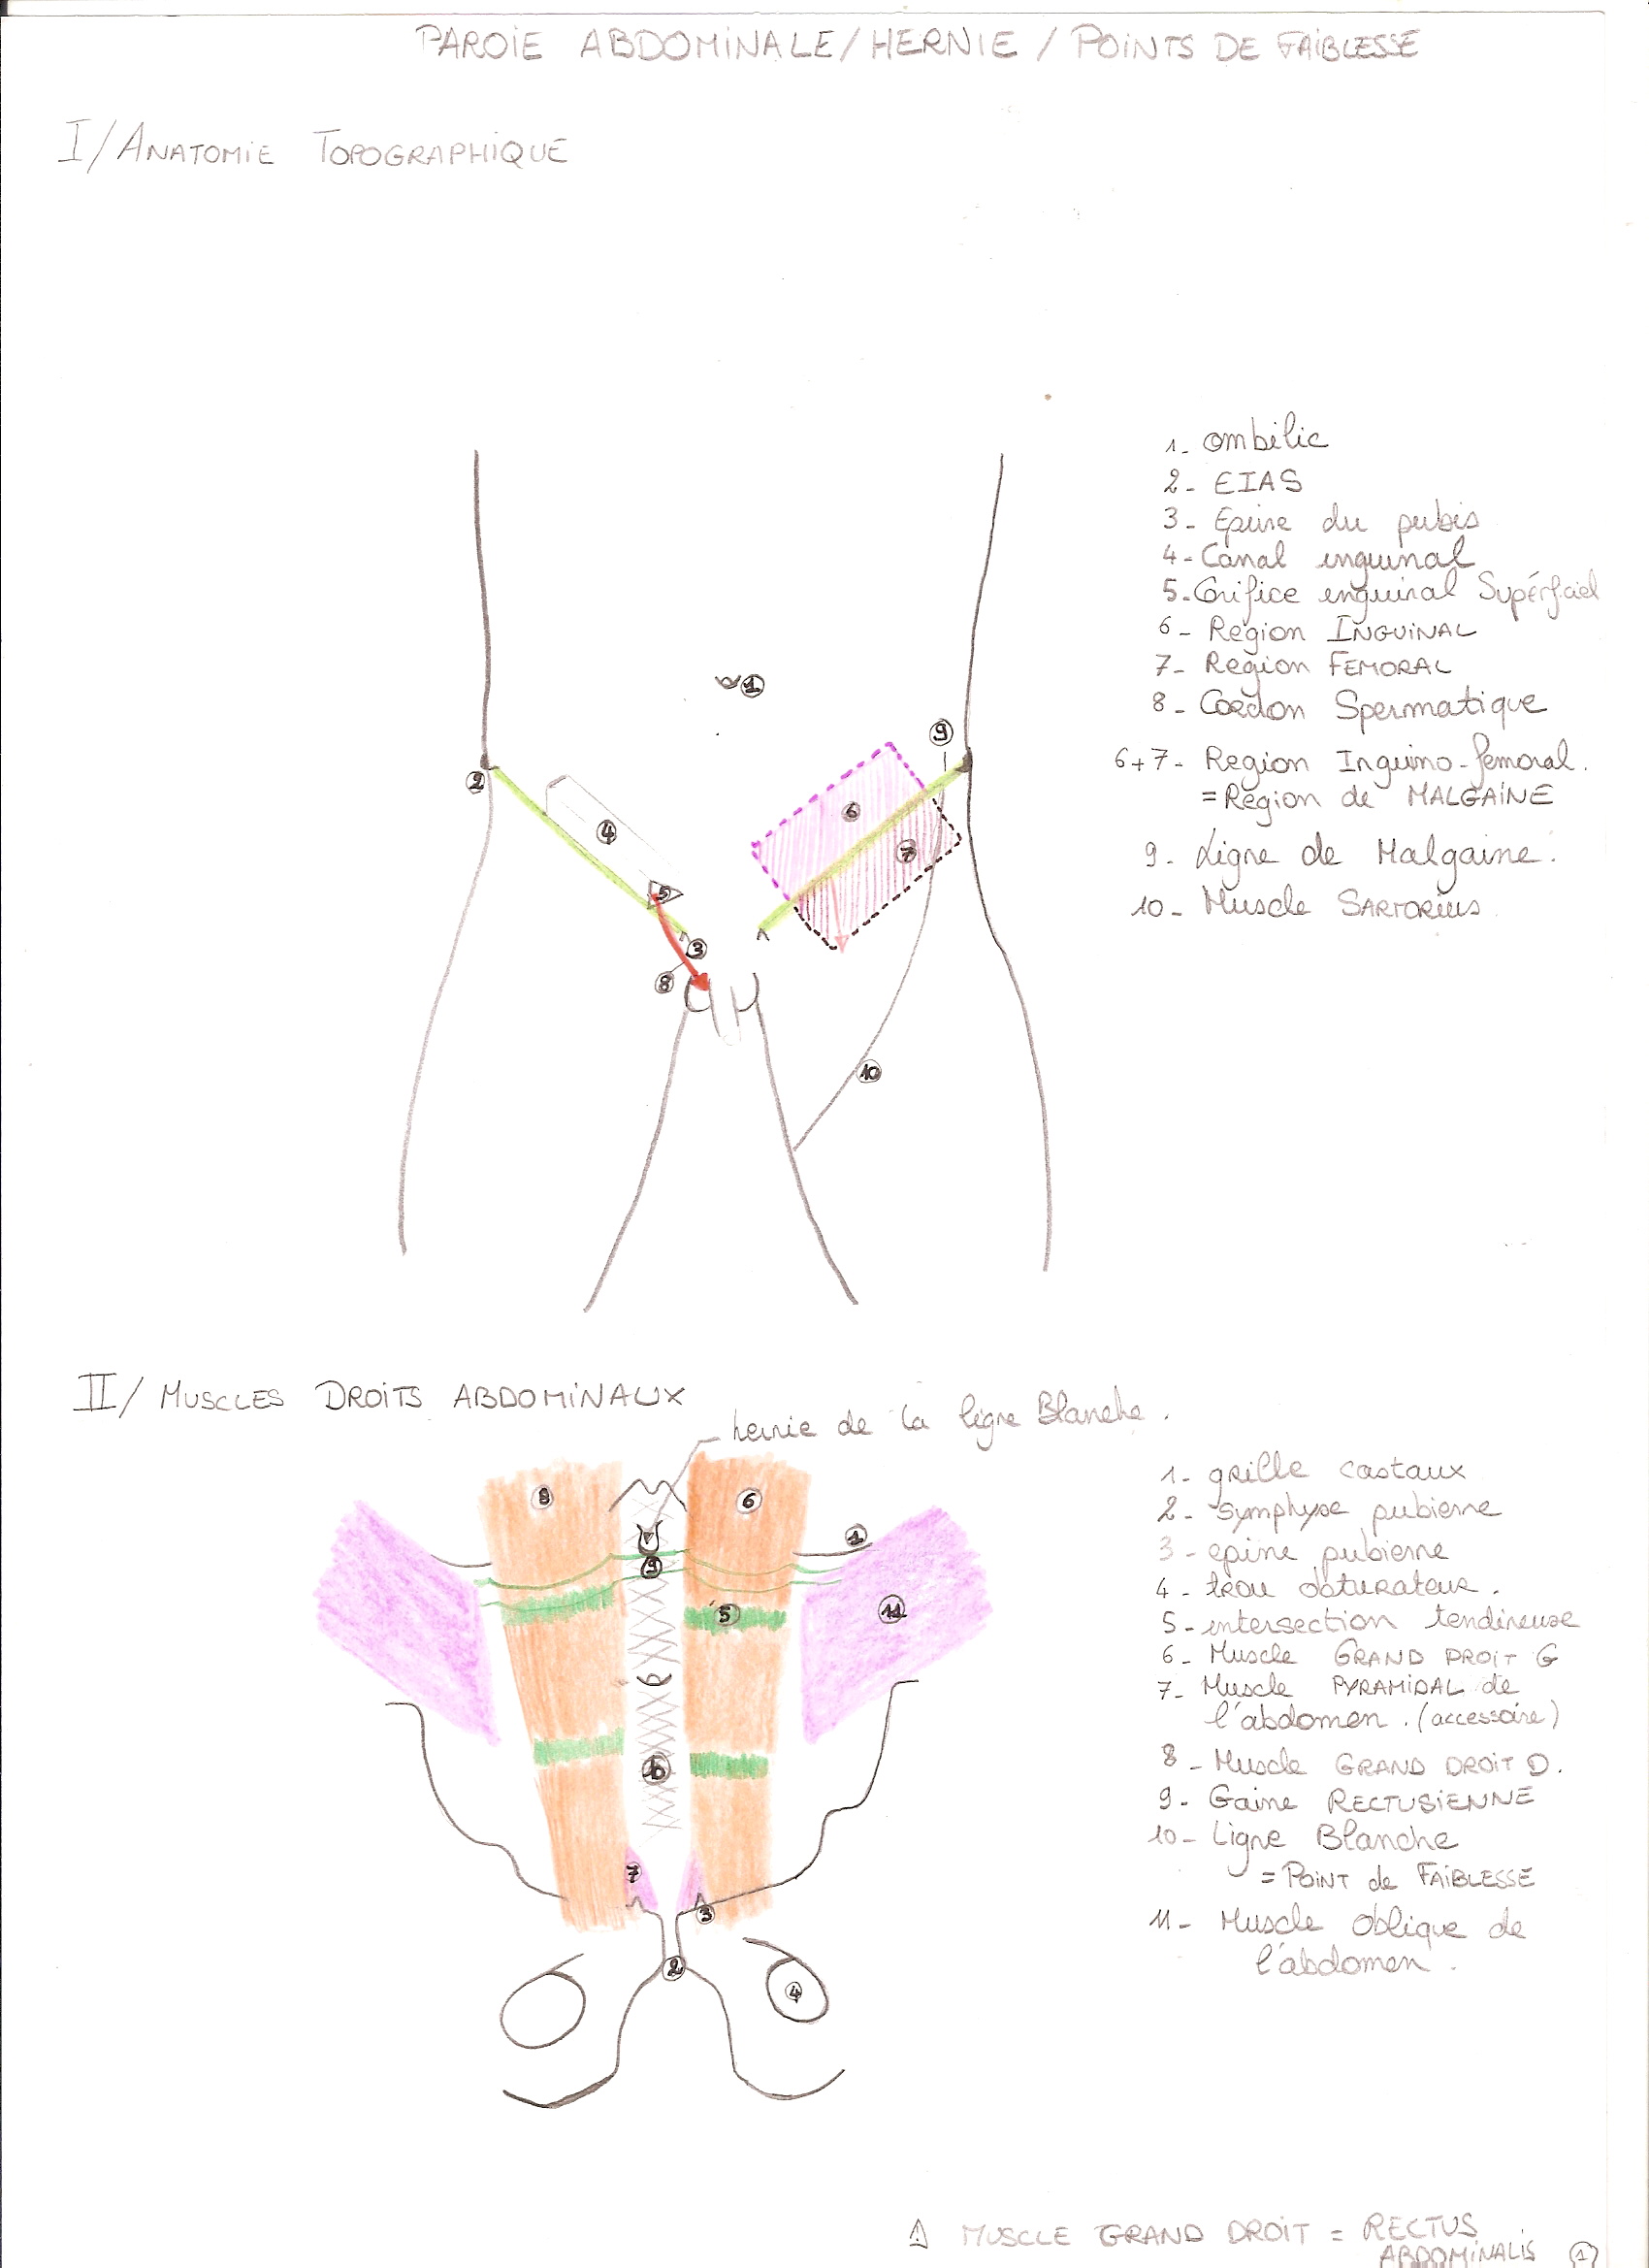 PAROIE ABDOMINALE / HERNIE / POINTS DE FAIBLESSE
I/ ANATOMIE TOPOGRAPHIQUE
1- ombilic
2- EIAS
3- Epine du pubis
4- Canal inguinal
5- Orifice inguinal Supérficiel
6- Region INGUINAL
7- Region FEMORAL
8- Cordon Spermatique
6+7- Region Inguino-femoral.
= Region de MALGAINE
9- Ligne de Malgaine.
10- Muscle SARTORIUS
1
9
2
6
4
7
5
3
8
10
II/ MUSCLES DROITS ABDOMINAUX
hernie de la ligne Blanche.
1- grille costaux
2- symphyse pubienne
3- epine pubienne
4- trou obturateur.
5- intersection tendineuse
6- Muscle GRAND DROIT G
7- Muscle PYRAMIDAL de
l'abdomen. (accessoire)
8- Muscle GRAND DROIT D.
9- Gaine RECTUSIENNE
10- Ligne Blanche
= POINT de FAIBLESSE
11- Muscle oblique de
l'abdomen.
8
6
1
9
5
11
10
7
3
2
4
⚠ MUSCLE GRAND DROIT = RECTUS
ABDOMINALIS
1